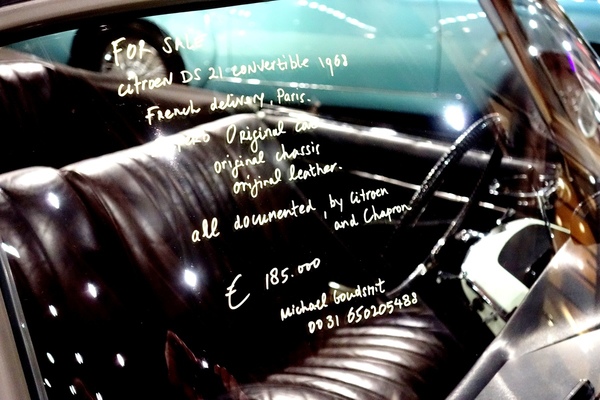 FOR SALE
Citroen DS 21 convertible 1968
French delivery, Paris.
Original car
original chassis
original leather.
all documented, by Citroen
and Chapron
€ 185.000
Michael Goudsmit
0031 650205488